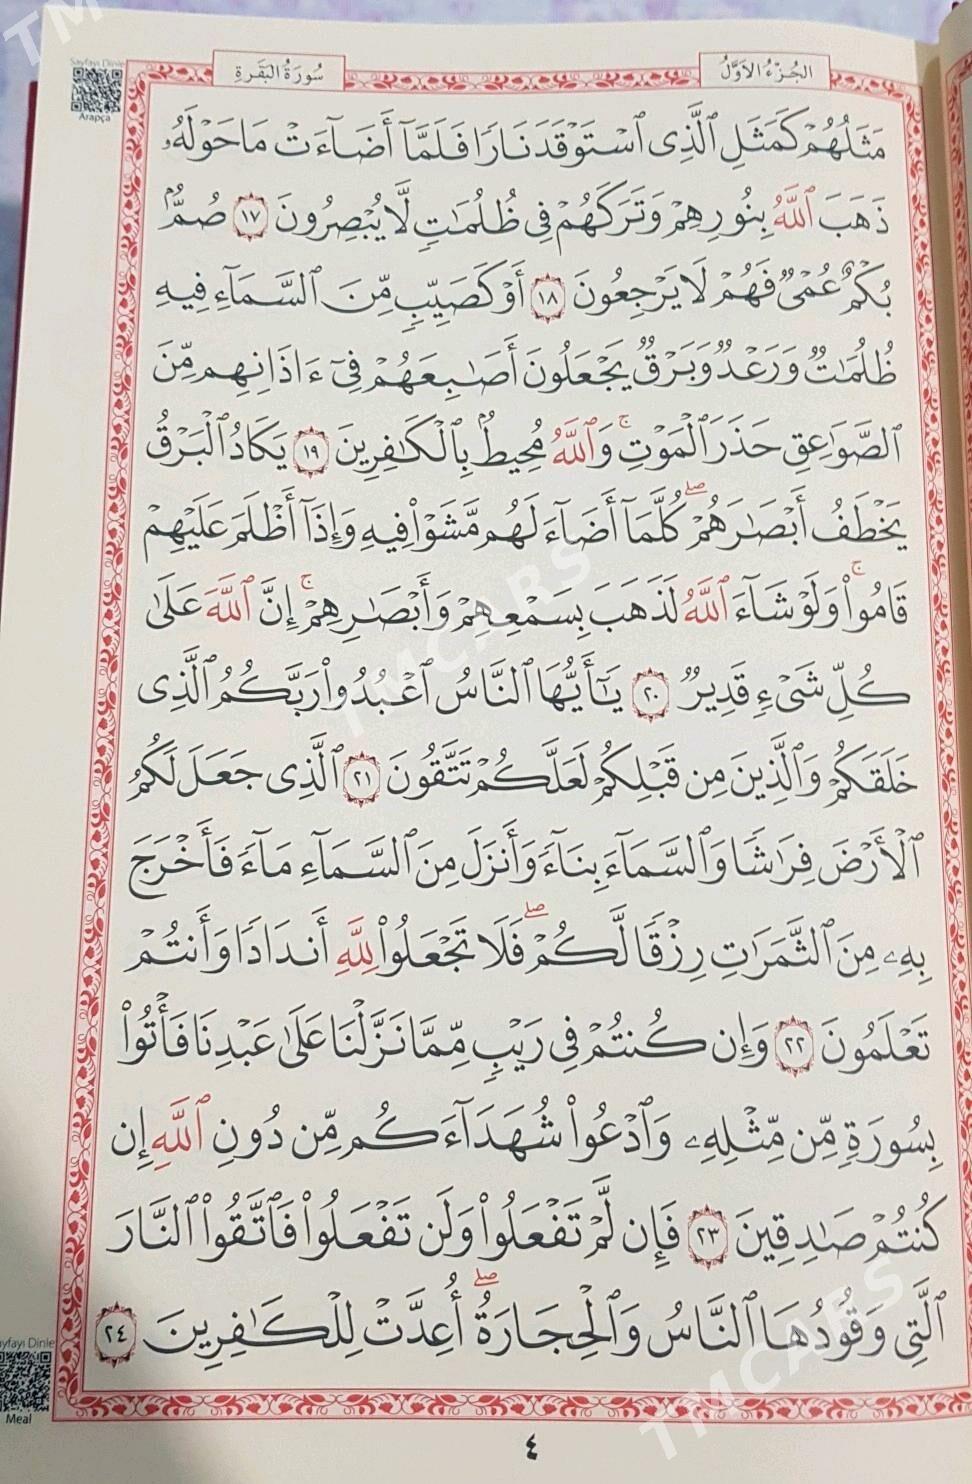 Sayfayı Dinle
Arapça
سُورَةُ الْبَقَرَةِ
الْجُزْءُ الْأَوَّلُ
مَثَلُهُمْ كَمَثَلِ ٱلَّذِى ٱسْتَوْقَدَ نَارًا فَلَمَّآ أَضَآءَتْ مَا حَوْلَهُۥ
ذَهَبَ ٱللَّهُ بِنُورِهِمْ وَتَرَكَهُمْ فِى ظُلُمَٰتٍ لَّا يُبْصِرُونَ ١٧ صُمٌّۢ
بُكْمٌ عُمْىٌ فَهُمْ لَا يَرْجِعُونَ ١٨ أَوْ كَصَيِّبٍ مِّنَ ٱلسَّمَآءِ فِيهِ
ظُلُمَٰتٌ وَرَعْدٌ وَبَرْقٌ يَجْعَلُونَ أَصَٰبِعَهُمْ فِىٓ ءَاذَانِهِم مِّنَ
ٱلصَّوَٰعِقِ حَذَرَ ٱلْمَوْتِ ۚ وَٱللَّهُ مُحِيطٌۢ بِٱلْكَٰفِرِينَ ١٩ يَكَادُ ٱلْبَرْقُ
يَخْطَفُ أَبْصَٰرَهُمْ ۖ كُلَّمَآ أَضَآءَ لَهُم مَّشَوْا۟ فِيهِ وَإِذَآ أَظْلَمَ عَلَيْهِمْ
قَامُوا۟ ۚ وَلَوْ شَآءَ ٱللَّهُ لَذَهَبَ بِسَمْعِهِمْ وَأَبْصَٰرِهِمْ ۚ إِنَّ ٱللَّهَ عَلَىٰ
كُلِّ شَىْءٍ قَدِيرٌ ٢٠ يَٰٓأَيُّهَا ٱلنَّاسُ ٱعْبُدُوا۟ رَبَّكُمُ ٱلَّذِى
خَلَقَكُمْ وَٱلَّذِينَ مِن قَبْلِكُمْ لَعَلَّكُمْ تَتَّقُونَ ٢١ ٱلَّذِى جَعَلَ لَكُمُ
ٱلْأَرْضَ فِرَٰشًا وَٱلسَّمَآءَ بِنَآءً وَأَنزَلَ مِنَ ٱلسَّمَآءِ مَآءً فَأَخْرَجَ
بِهِۦ مِنَ ٱلثَّمَرَٰتِ رِزْقًا لَّكُمْ ۖ فَلَا تَجْعَلُوا۟ لِلَّهِ أَندَادًا وَأَنتُمْ
تَعْلَمُونَ ٢٢ وَإِن كُنتُمْ فِى رَيْبٍ مِّمَّا نَزَّلْنَا عَلَىٰ عَبْدِنَا فَأْتُوا۟
بِسُورَةٍ مِّن مِّثْلِهِۦ وَٱدْعُوا۟ شُهَدَآءَكُم مِّن دُونِ ٱللَّهِ إِن
كُنتُمْ صَٰدِقِينَ ٢٣ فَإِن لَّمْ تَفْعَلُوا۟ وَلَن تَفْعَلُوا۟ فَٱتَّقُوا۟ ٱلنَّارَ
ٱلَّتِى وَقُودُهَا ٱلنَّاسُ وَٱلْحِجَارَةُ ۖ أُعِدَّتْ لِلْكَٰفِرِينَ ٢٤
ayfayı Dinle
Meal
٤
TM
TMCARS
TMCARS